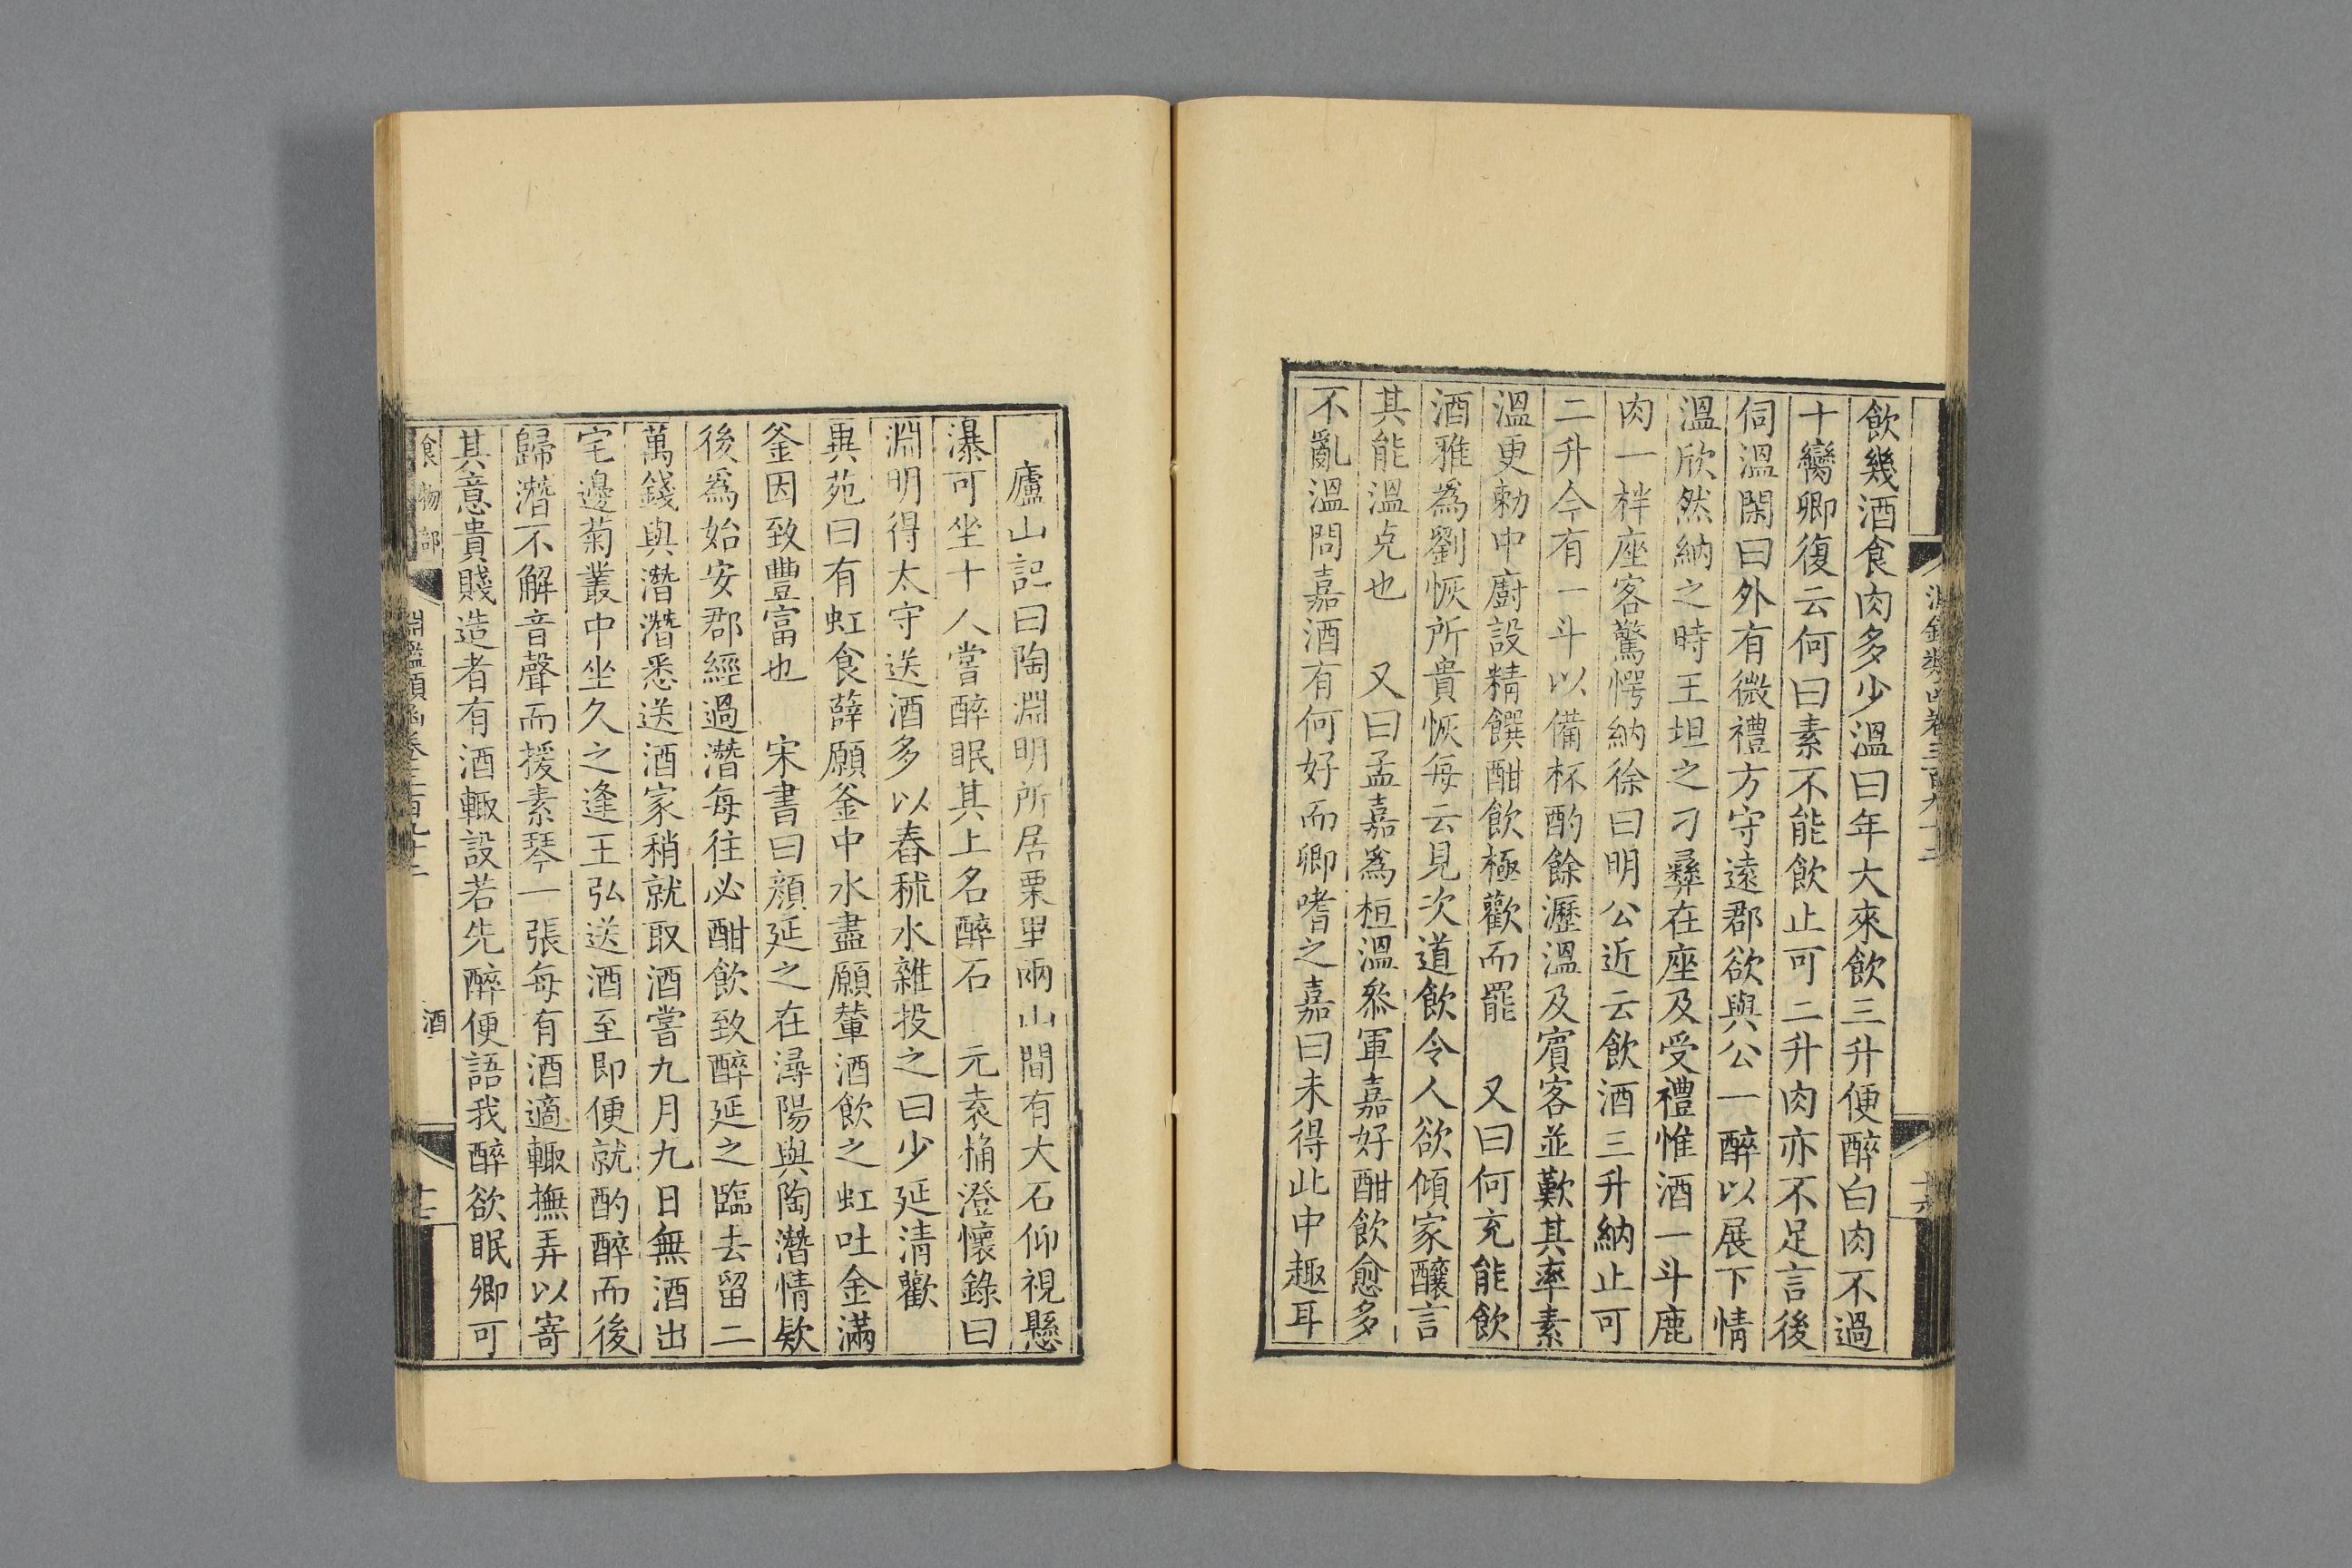 飲幾酒食肉多少溫曰年大來飲三升便醉白肉不過
十臠卿復云何曰素不能飲止可二升肉亦不足言後
伺溫閑曰外有微禮方守遠郡欲與公一醉以展下情
溫欣然納之時王坦之刁彞在座及受禮惟酒一斗鹿
肉一柈座客驚愕納徐曰明公近云飲酒三升納止可
二升今有一斗以備杯酌餘瀝溫及賓客並歎其率素
溫更勅中廚設精饌酣飲極歡而罷　又曰何充能飲
酒雅爲劉恢所貴恢每云見次道飲令人欲傾家釀言
其能溫克也　又曰孟嘉爲桓溫叅軍嘉好酣飲愈多
不亂溫問嘉酒有何好而卿嗜之嘉曰未得此中趣耳
廬山記曰陶淵明所居栗里兩山間有大石仰視懸
瀑可坐十人嘗醉眠其上名醉石　元袁桷澄懷錄曰
淵明得太守送酒多以舂秫水雜投之曰少延清歡
異苑曰有虹食薛願釜中水盡願輦酒飲之虹吐金滿
釜因致豐富也　宋書曰顏延之在潯陽與陶潛情欵
後爲始安郡經過潛每往必酣飲致醉延之臨去留二
萬錢與潛潛悉送酒家稍就取酒嘗九月九日無酒出
宅邊菊叢中坐久之逢王弘送酒至即便就酌醉而後
歸潛不解音聲而援素琴一張每有酒適輙撫弄以寄
其意貴賤造者有酒輙設若先醉便語我醉欲眠卿可
食物部
淵鑑類函卷三百九十二
酒